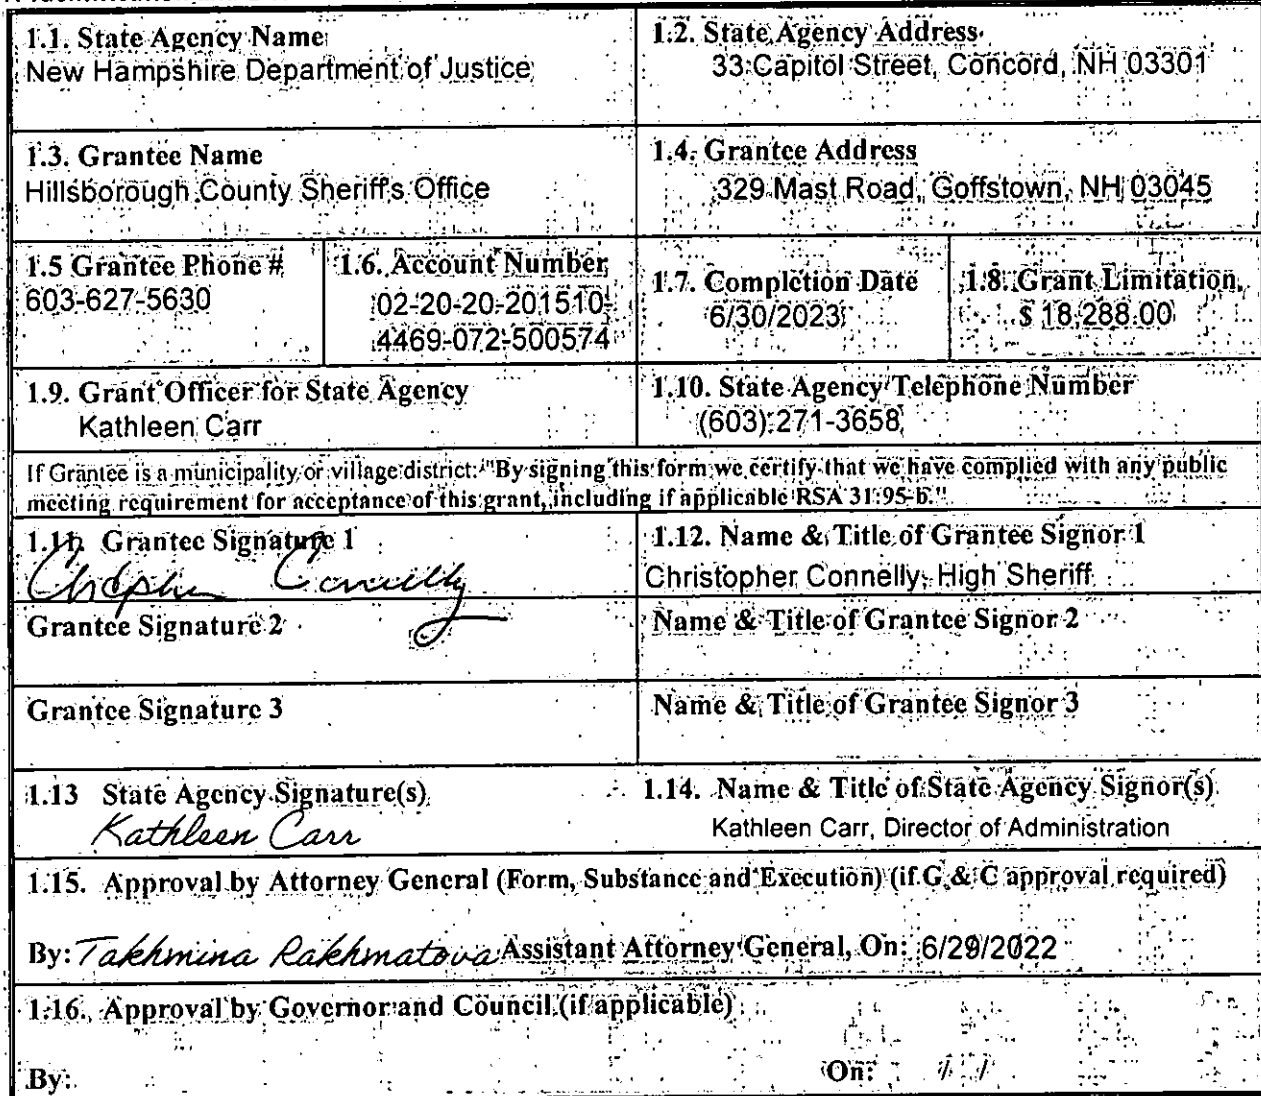 1.1. State Agency Name
New Hampshire Department of Justice
1.2. State Agency Address
33 Capitol Street, Concord, NH 03301
1.3. Grantee Name
Hillsborough County Sheriff's Office
1.4. Grantee Address
329 Mast Road, Goffstown, NH 03045
1.5 Grantee Phone #
603-627-5630
1.6. Account Number
02-20-20-201510-
4469-072-500574
1.7. Completion Date
6/30/2023
1.8. Grant Limitation
$ 18,288.00
1.9. Grant Officer for State Agency
Kathleen Carr
1.10. State Agency Telephone Number
(603) 271-3658
If Grantee is a municipality or village district: "By signing this form we certify that we have complied with any public
meeting requirement for acceptance of this grant, including if applicable RSA 31:95-b."
1.11. Grantee Signature 1
Christopher Connelly
1.12. Name & Title of Grantee Signor 1
Christopher Connelly, High Sheriff
Grantee Signature 2
Name & Title of Grantee Signor 2
Grantee Signature 3
Name & Title of Grantee Signor 3
1.13 State Agency Signature(s)
Kathleen Carr
1.14. Name & Title of State Agency Signor(s)
Kathleen Carr, Director of Administration
1.15. Approval by Attorney General (Form, Substance and Execution) (if G & C approval required)
By: Takhmina Rakhmatova Assistant Attorney General, On: 6/29/2022
1.16. Approval by Governor and Council (if applicable)
By: On: / /